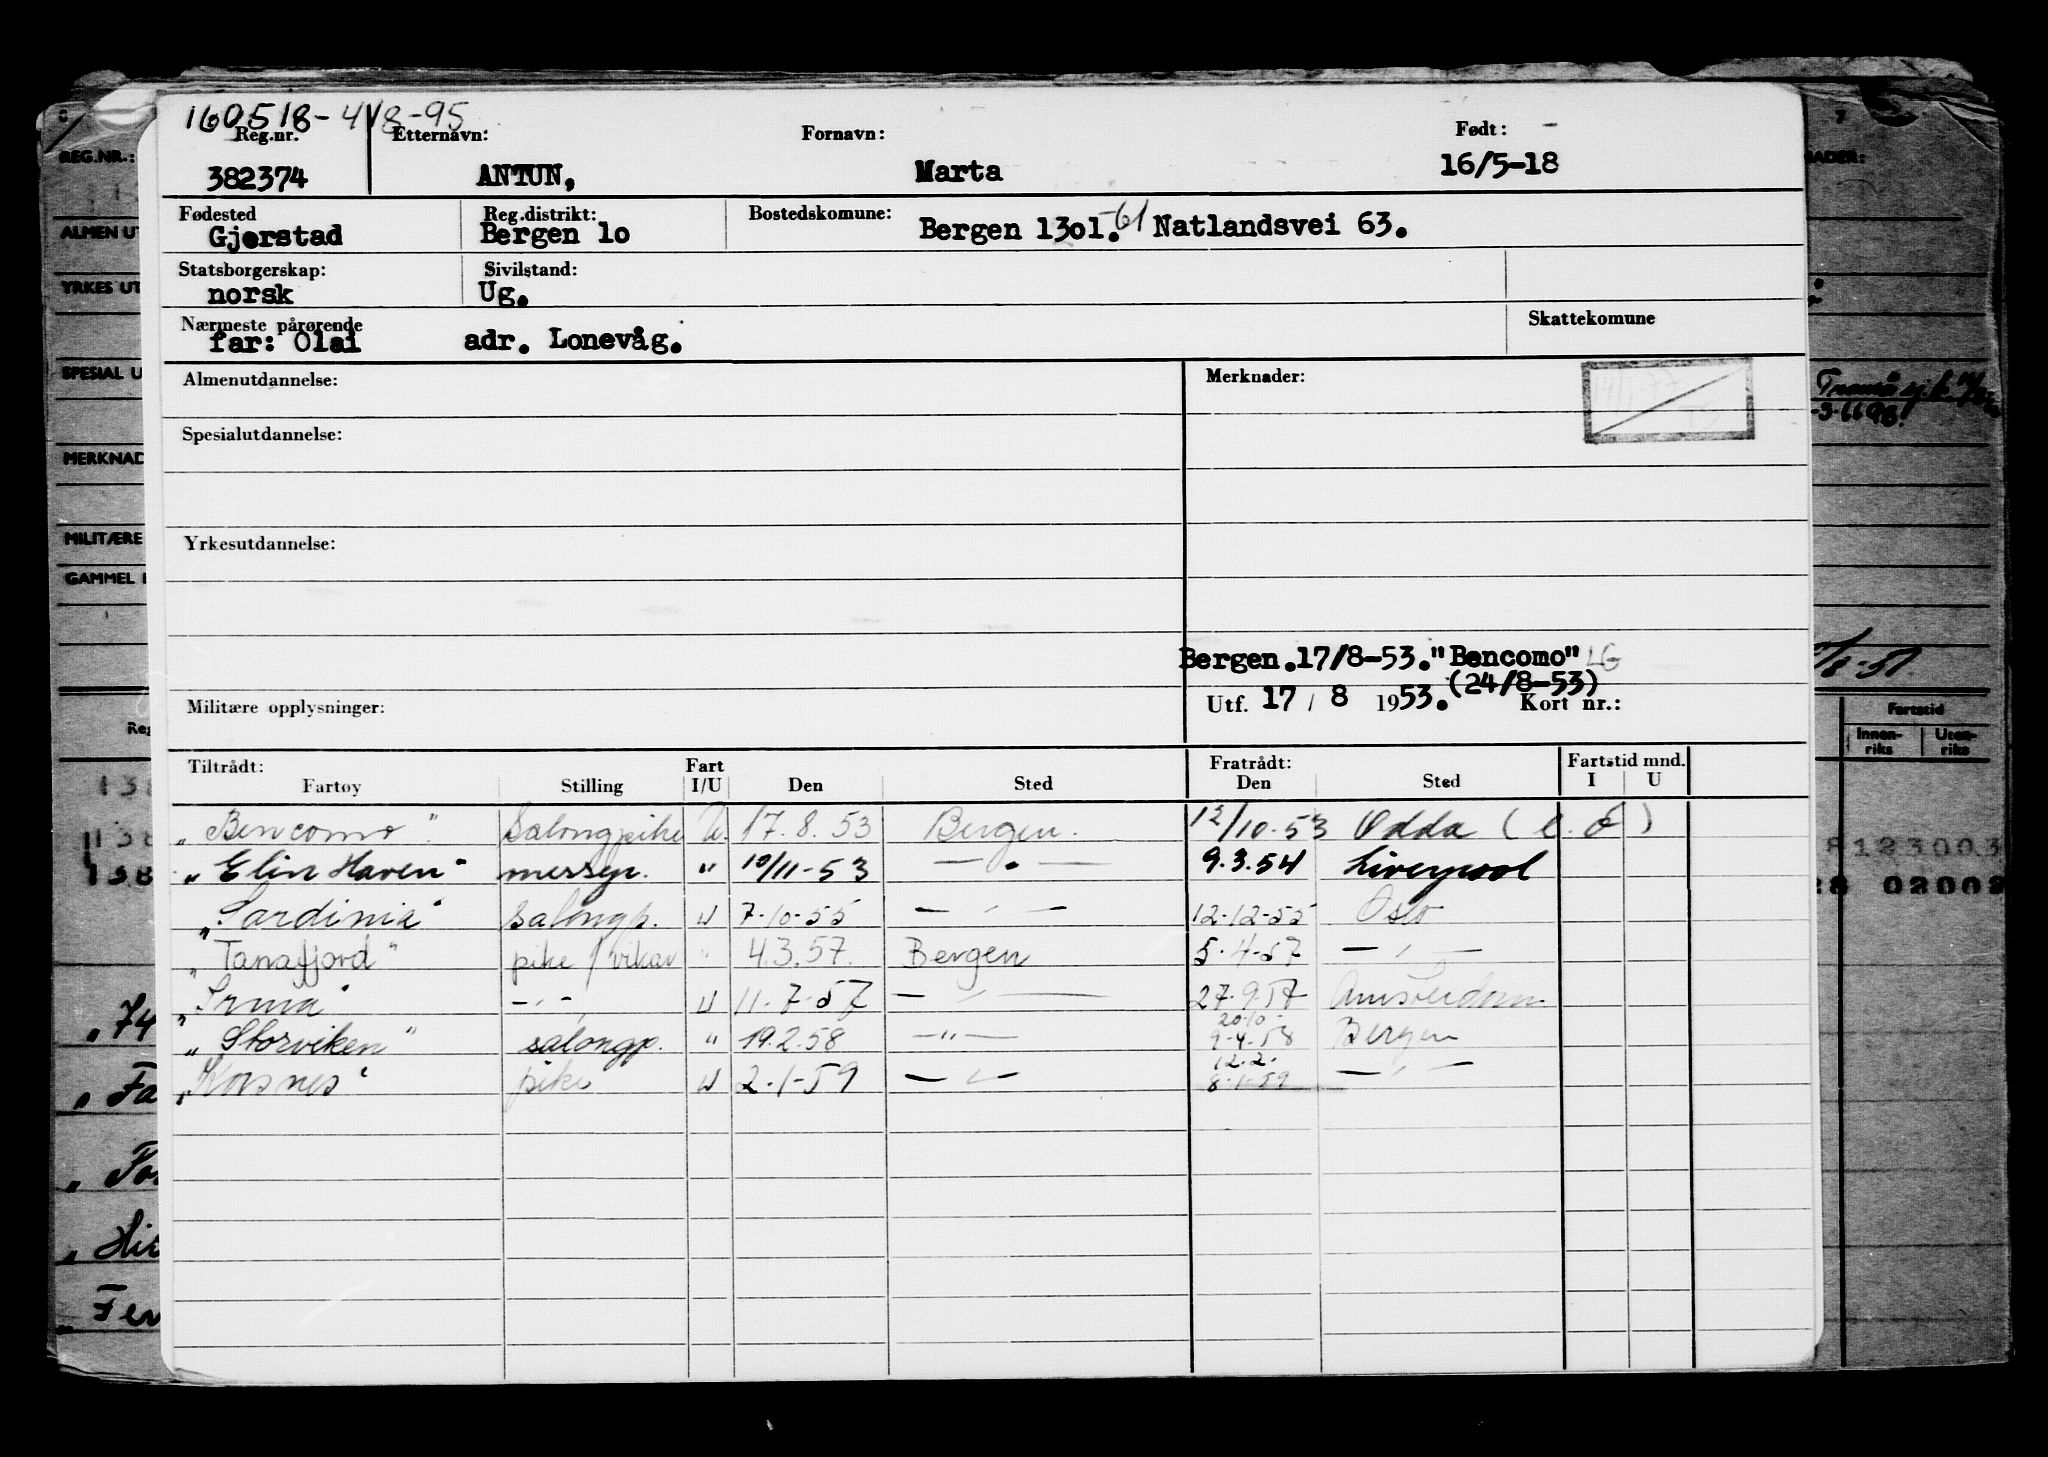 160518-448-95
Reg.nr. Etternavn: Fornavn: Født:
382374 ANTUN, Marta 16/5-18
Fødested Reg.distrikt: Bostedskomune:
Gjerstad Bergen 1o Bergen 13o1.-61 Natlandsvei 63.
Statsborgerskap: Sivilstand:
norsk Ug.
Nærmeste pårørende Skattekomune
far: Olai adr. Lonevåg.
Almenutdannelse: Merknader:
Spesialutdannelse:
Yrkesutdannelse:
Bergen.17/8-53."Bencomo" LG
(24/8-53)
Militære opplysninger: Utf. 17 / 8 1953. Kort nr.:
Tiltrådt: Fart Fratrådt: Fartstid mnd.
Fartøy Stilling I/U Den Sted Den Sted I U
"Bencomo". Salongpike U. 17.8.53 Bergen. 12/10-53 Odda
"Elin Haven" messep. " 10/11-53 — " — 9.3.54 Liverpool
"Sardinia" Salongp. U 7-10-55 — " — 12-12-55 Oslo
"Tanafjord" pike / vikar " 4.3.57. Bergen 5.4-57 — " —
"Irma" - " - U 11.7-57 — " — 27.9.57 Amsterdam
20.10-
"Storviken" salongp. " 19.2.58 — " — 9-4.58 Bergen
12.2.
"Korsnes" pike U 2.1-59 — " — 8.1-59 — " —
REG.NR.:
ALMEN UT
YRKES UT
SPESIAL U
MERKNAD
MILITÆRE
GAMMEL
Reg
Fartstid
Innen-riks Uten-riks
123003
02002
"74
"Fa
"Hi
"Fer